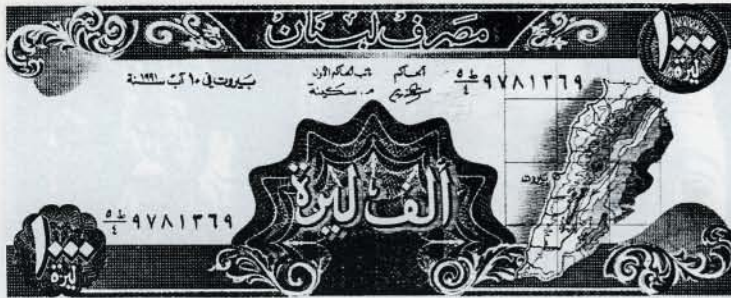 مصرف لبنان
١٠٠٠
ليرة
بيروت في ١٠ آب سنة ١٩٩١
نائب الحاكم الأول
الحاكم
م. سكينة
٩٧٨١٣٦٩
بيروت
ألف ليرة
٩٧٨١٣٦٩
١٠٠٠
ليرة